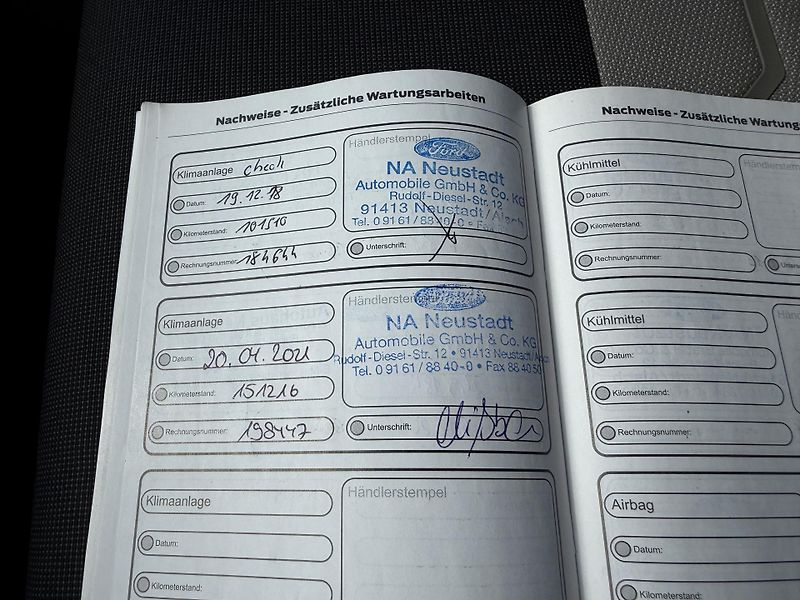 Nachweise - Zusätzliche Wartungsarbeiten
Klimaanlage Check
Datum: 19.12.18
Kilometerstand: 101510
Rechnungsnummer: 184644
Händlerstempel
Ford
NA Neustadt
Automobile GmbH & Co. KG
Rudolf-Diesel-Str. 12
91413 Neustadt/Aisch
Tel. 0 91 61/88
Unterschrift:
Klimaanlage
Datum: 20.01.2021
Kilometerstand: 151216
Rechnungsnummer: 198447
Händlerstempel
NA Neustadt
Automobile GmbH & Co. KG
Rudolf-Diesel-Str. 12 • 91413 Neustadt/Aisch
Tel. 0 91 61/ 88 40-0 • Fax 88 40 50
Unterschrift:
Klimaanlage
Datum:
Kilometerstand:
Händlerstempel
Nachweise - Zusätzliche Wartung
Kühlmittel
Datum:
Kilometerstand:
Rechnungsnummer:
Händlerstempel
Kühlmittel
Datum:
Kilometerstand:
Rechnungsnummer:
Airbag
Datum:
Kilometerstand: